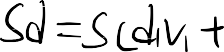 Sd = S(d₁v₁ +